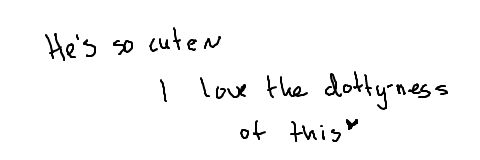 He's so cute~
I love the dotty-ness
of this